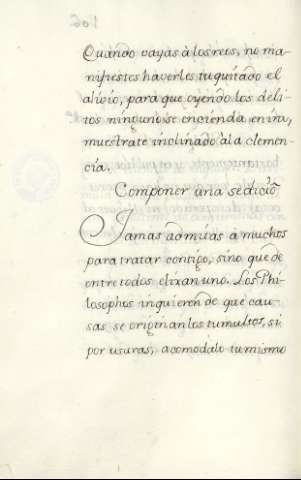 Quando vayas à los reis, no ma
nifiestes haverles tu quitado el
alivio, para que oyendo los deli
tos ninguno se encienda en ira,
muestrate inclinado àla clemen
cia.
Componer una sediciõ
Jamas admitas a muchos
para tratar contigo, sino que de
entre todos elixan uno. Los Phi
losophos inquieren de que cau
sas se originan los tumultos, si
por usuras, acomodalo tu mismo